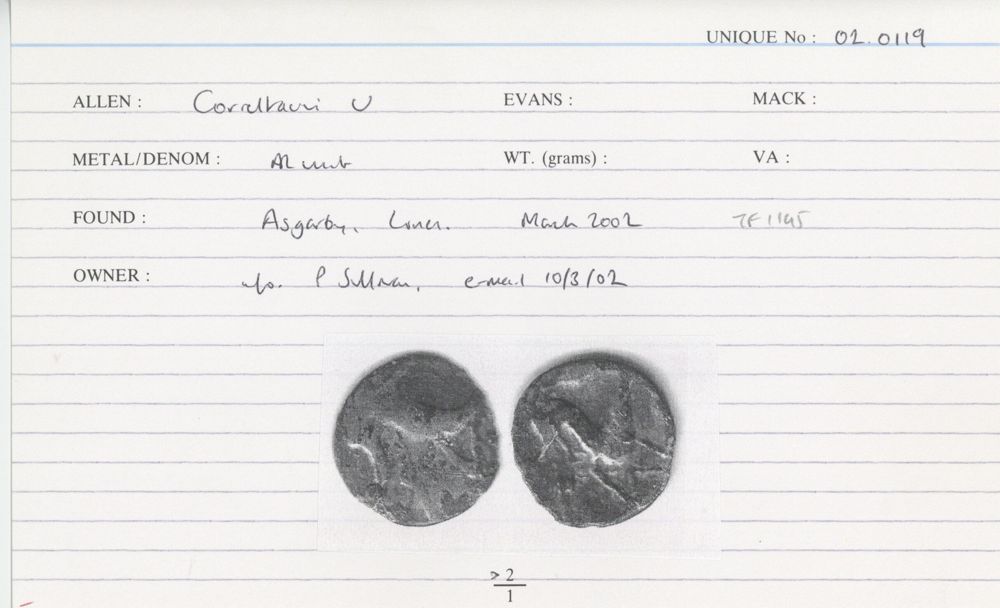 UNIQUE No : 02.0119
ALLEN : Corieltauvi U EVANS : MACK :
METAL/DENOM : AR unit WT. (grams) : VA :
FOUND : Asgarby, Lincs. March 2002
OWNER : P Sullivan, e-mail 10/3/02
> 2
1